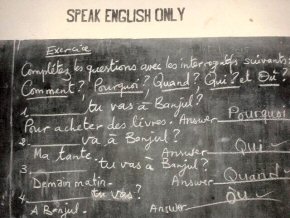 SPEAK ENGLISH ONLY
Exercice
Complétez les questions avec les interrogatifs suivants:
Comment?, Pourquoi?, Quand?, Qui? et Où?
1. ______ tu vas à Banjul?
Pour acheter des livres. Answer Pourquoi
2. ______ va à Banjul?
Ma tante. Answer Qui
3. ______ tu vas à Banjul?
Demain matin. Answer Quand
4. ______ tu vas?
A Banjul. Answer Où